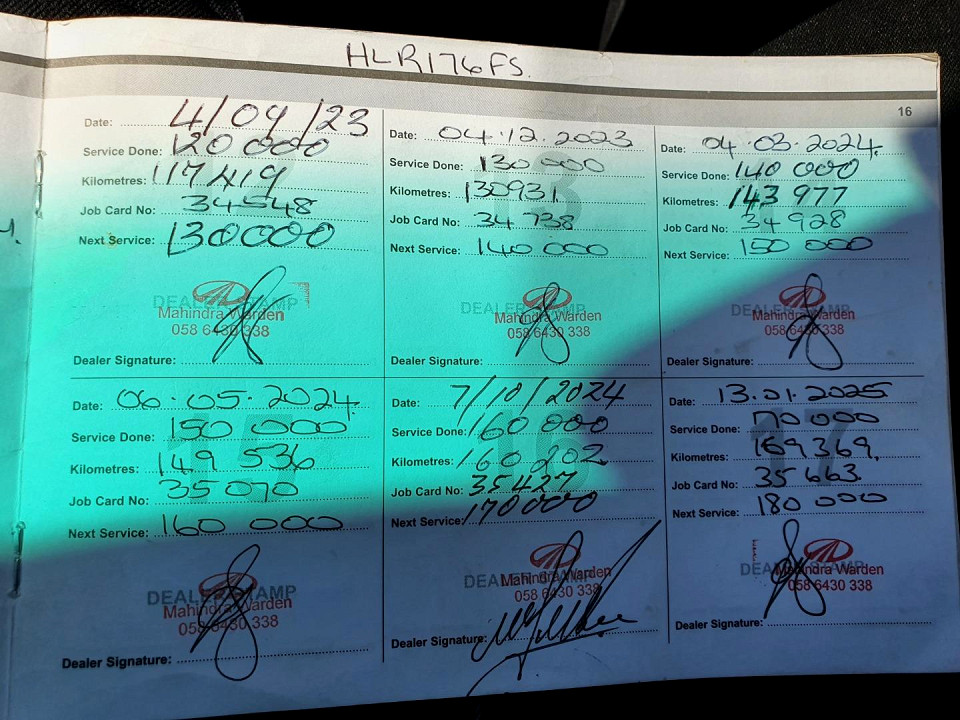 HLR176FS.
16
Date: 4/09/23
Service Done: 120000
Kilometres: 117419
Job Card No: 34548
Next Service: 130000
DEALER STAMP
Mahindra Warden
058 6430 338
Dealer Signature:
Date: 04.12.2023
Service Done: 130 000
Kilometres: 130931
Job Card No: 34 738
Next Service: 140 000
DEALER STAMP
Mahindra Warden
058 6430 338
Dealer Signature:
Date: 04.03.2024
Service Done: 140 000
Kilometres: 143 977
Job Card No: 34 928
Next Service: 150 000
DEALER STAMP
Mahindra Warden
058 6430 338
Dealer Signature:
Date: 06.05.2024
Service Done: 150 000
Kilometres: 149 536
Job Card No: 35 070
Next Service: 160 000
DEALER STAMP
Mahindra Warden
058 6430 338
Dealer Signature:
Date: 7/10/2024
Service Done: 160 000
Kilometres: 160 202
Job Card No: 35427
Next Service: 170000
DEALER STAMP
Mahindra Warden
058 6430 338
Dealer Signature:
Date: 13.01.2025
Service Done: 170 000
Kilometres: 169369
Job Card No: 35 663
Next Service: 180 000
DEALER STAMP
Mahindra Warden
058 6430 338
Dealer Signature: